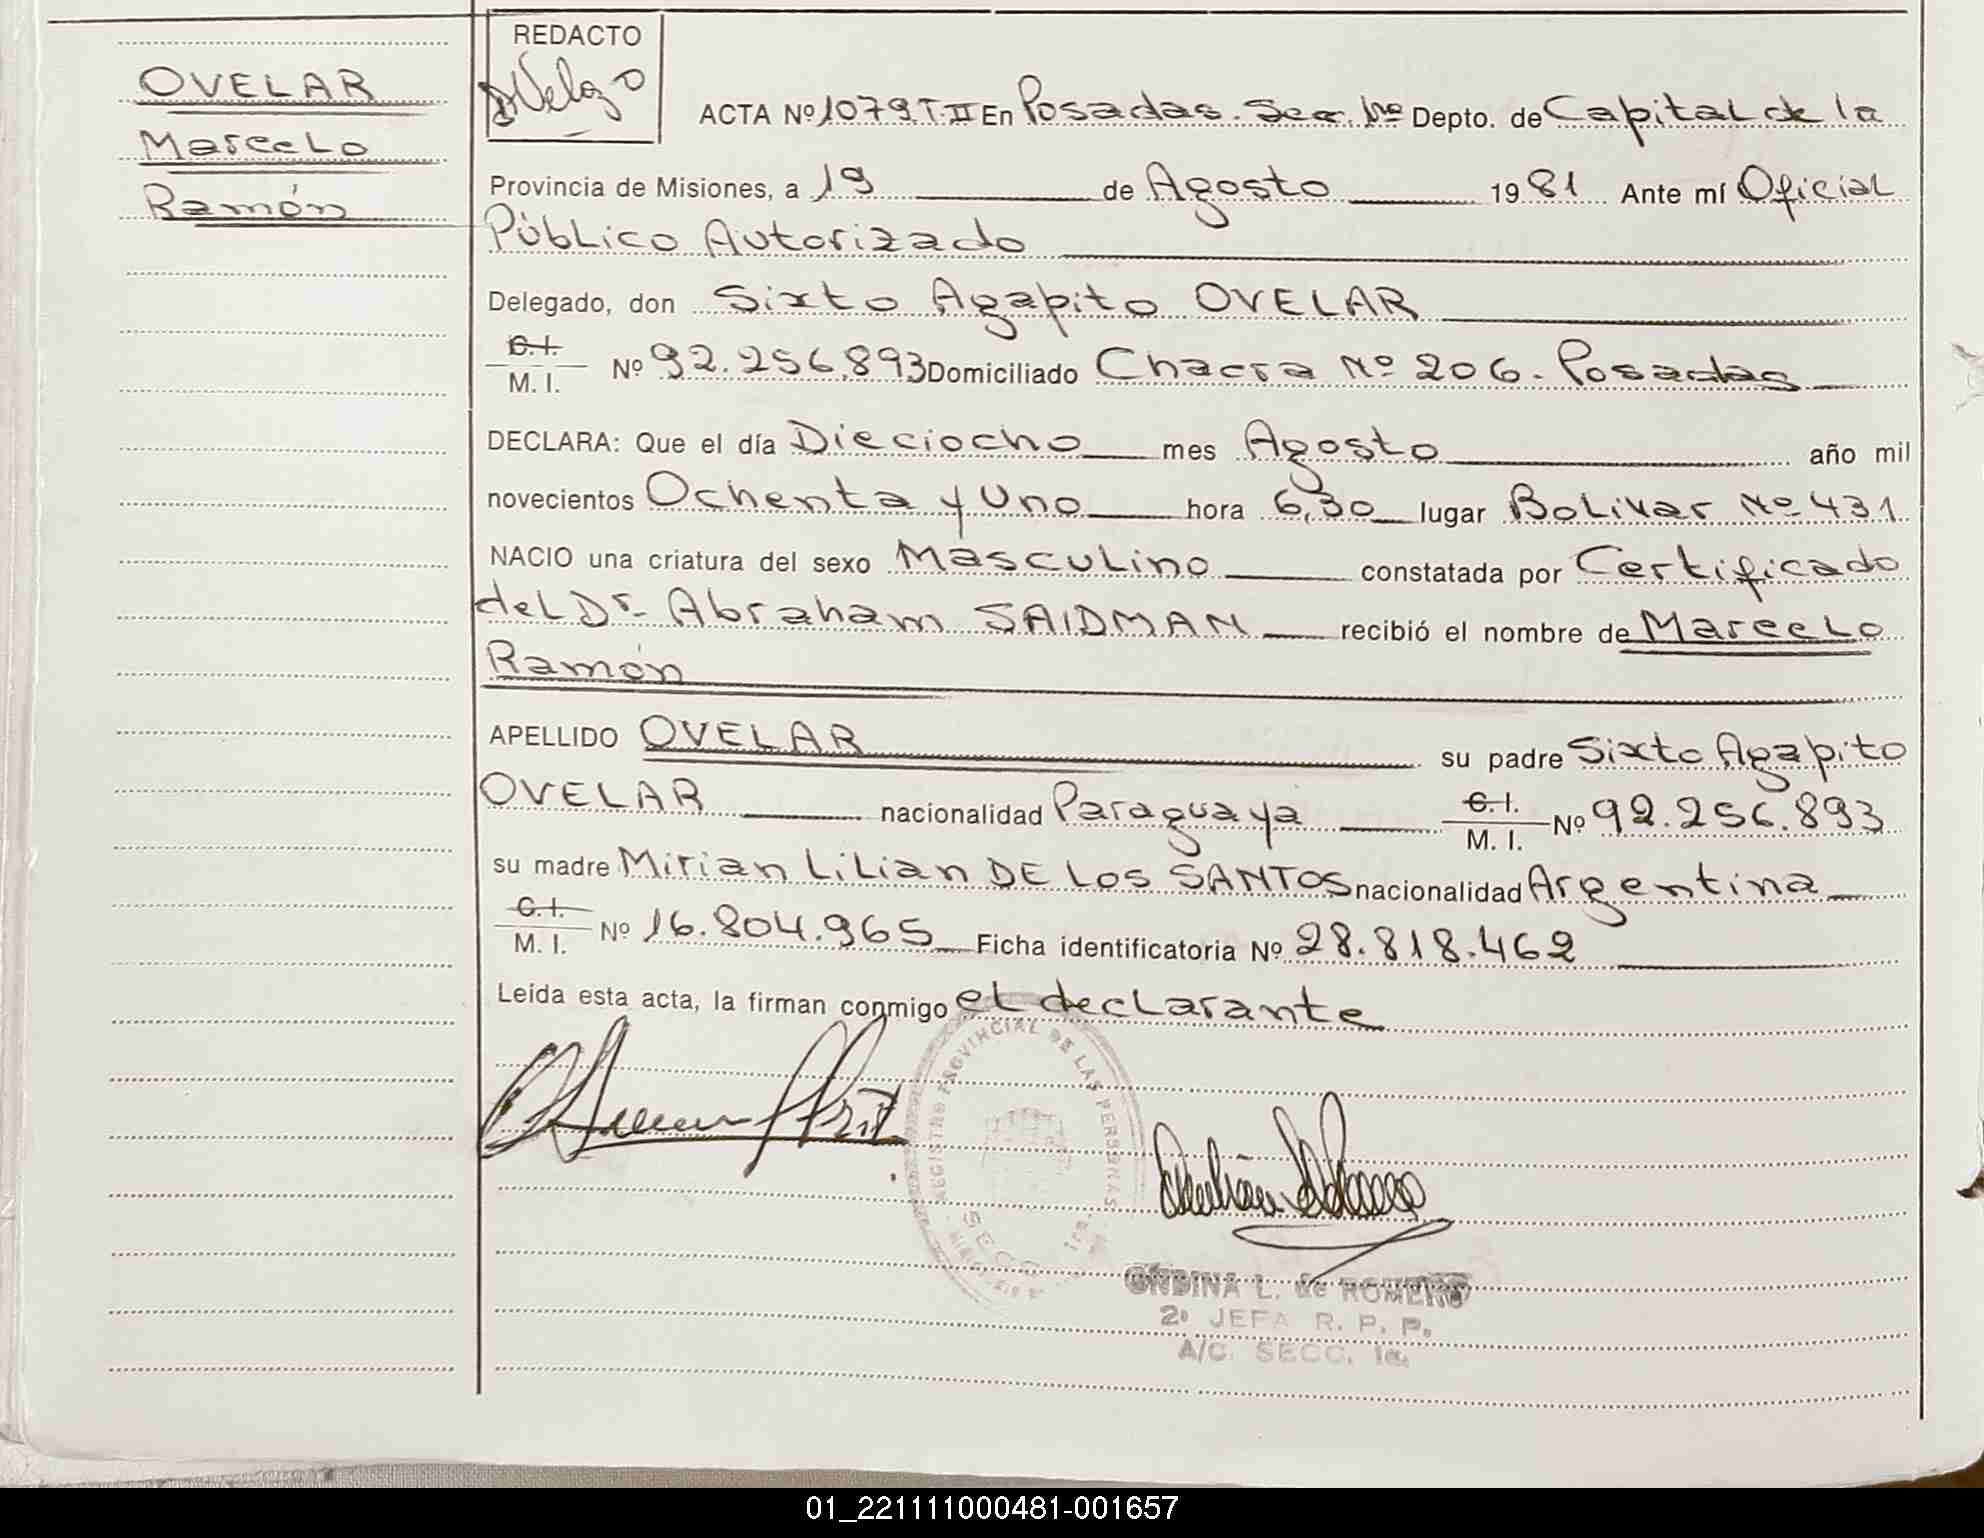 OVELAR
Marcelo
Ramón
REDACTO
ACTA Nº 1079 T.II En Posadas. Secc. 1ra Depto. de Capital de la
Provincia de Misiones, a 19 de Agosto 1981 Ante mí Oficial
Público Autorizado
Delegado, don Sixto Agapito OVELAR
C.I.
M. I. Nº 92.256.893 Domiciliado Chacra Nº 206. Posadas
DECLARA: Que el día Dieciocho mes Agosto año mil
novecientos Ochenta y Uno hora 6,30 lugar Bolivar Nº 431
NACIO una criatura del sexo Masculino constatada por Certificado
del Dr. Abraham SAIDMAN recibió el nombre de Marcelo
Ramón
APELLIDO OVELAR su padre Sixto Agapito
OVELAR nacionalidad Paraguaya C.I. M. I. Nº 92.256.893
su madre Mirian Lilian DE LOS SANTOS nacionalidad Argentina
C.I.
M. I. Nº 16.804.965 Ficha identificatoria Nº 28.818.462
Leída esta acta, la firman conmigo el declarante
REGISTRO PROVINCIAL DE LAS PERSONAS
SECC. 1ra.
ONDINA L. de ROMERO
2º JEFA R. P. P.
A/C. SECC. 1a.
01_221111000481-001657